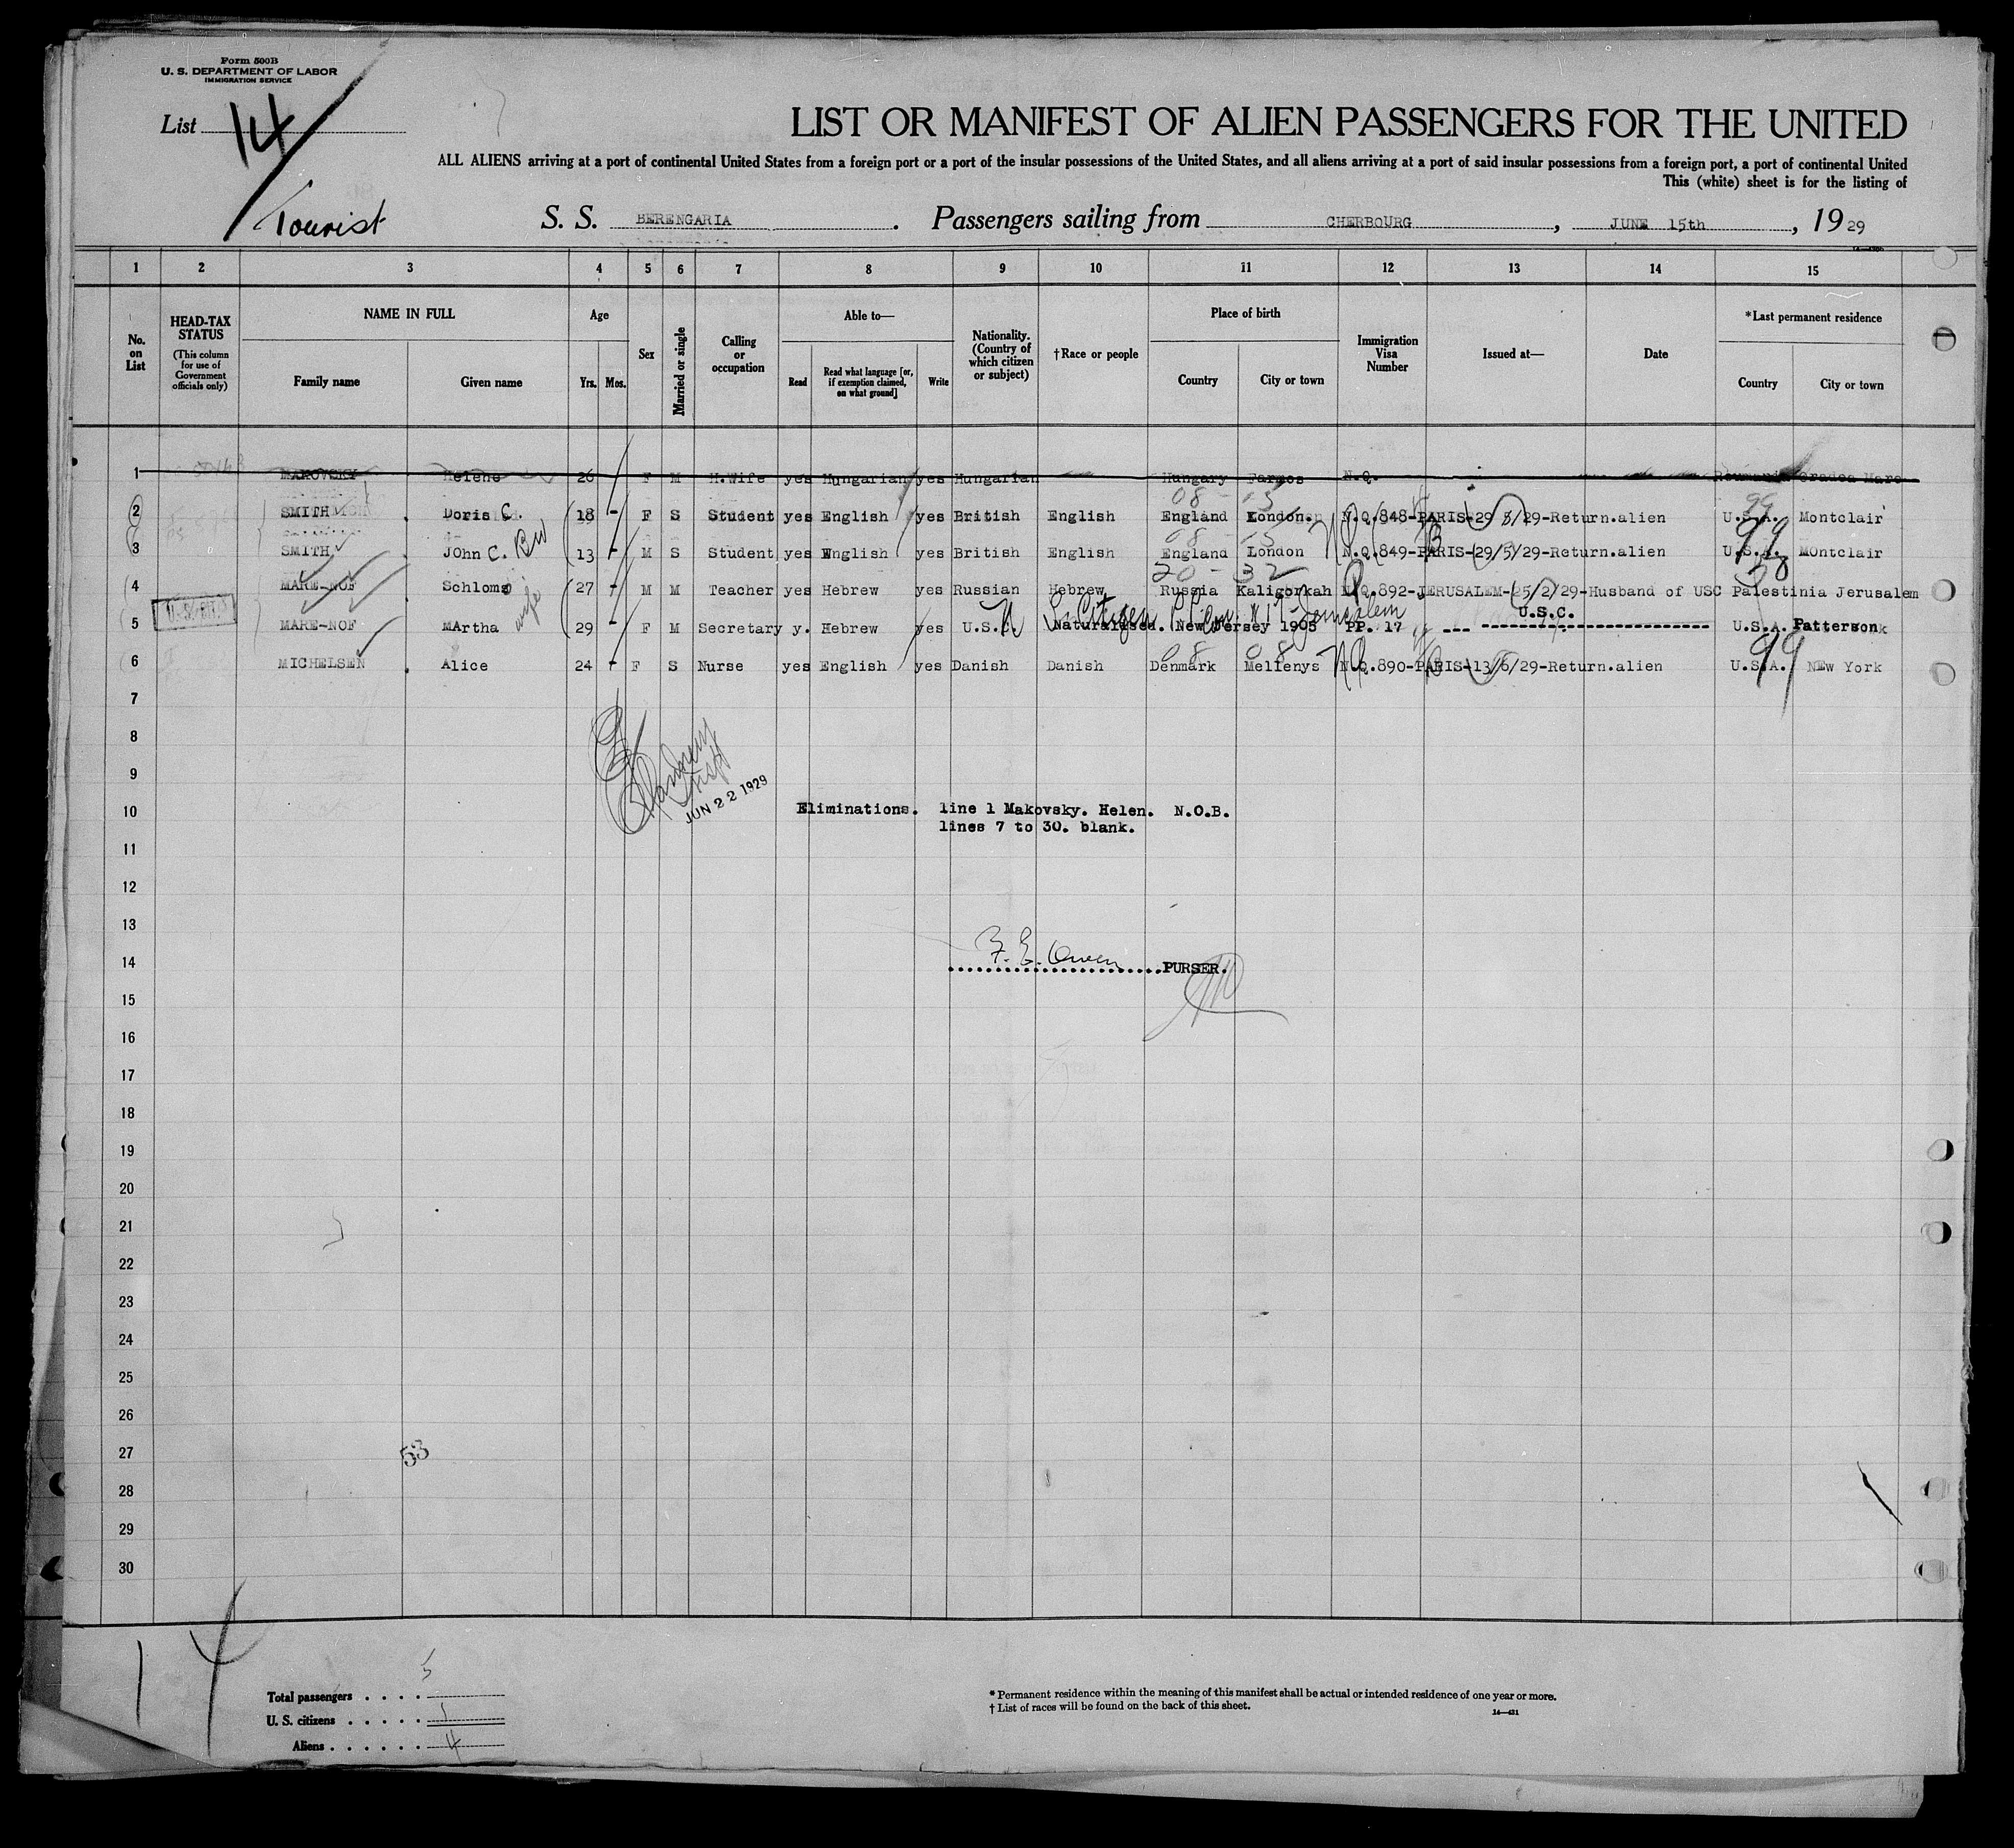 Form 500B
U. S. DEPARTMENT OF LABOR
IMMIGRATION SERVICE
List 14
Tourist
LIST OR MANIFEST OF ALIEN PASSENGERS FOR THE UNITED
ALL ALIENS arriving at a port of continental United States from a foreign port or a port of the insular possessions of the United States, and all aliens arriving at a port of said insular possessions from a foreign port, a port of continental United
This (white) sheet is for the listing of
S. S. BERENGARIA . Passengers sailing from CHERBOURG , JUNE 15th , 19 29
1 2 3 4 5 6 7 8 9 10 11 12 13 14 15
No. on List
HEAD-TAX STATUS
(This column for use of Government officials only)
NAME IN FULL
Family name Given name
Age
Yrs. Mos.
Sex
Married or single
Calling or occupation
Able to—
Read Read what language [or, if exemption claimed, on what ground] Write
Nationality. (Country of which citizen or subject)
†Race or people
Place of birth
Country City or town
Immigration Visa Number
Issued at—
Date
*Last permanent residence
Country City or town
1 MAKOVSKY Helene 26 F M H.Wife yes Hungarian yes Hungarian Hungary Farmos N.Q. Roumania Oradea Mare
08 - 13 99
2 SMITH Doris C. 18 - F S Student yes English yes British English England London. N.Q.848-PARIS-29/5/29-Return.alien U.S.A. Montclair
08 - 13 99
3 SMITH JOhn C. 13 - M S Student yes English yes British English England London N.Q.849-PARIS-29/5/29-Return.alien U.S.A. MOntclair
20 - 32 58
4 MARE-NOF Schlomo 27 - M M Teacher yes Hebrew yes Russian Hebrew Russia Kaligorkah N.Q.892-JERUSALEM-25/2/29-Husband of USC Palestinia Jerusalem
U.S.C.
5 MARE-NOF MArtha wife 29 - F M Secretary y. Hebrew yes U.S. Naturalised. New Jersey 1905 PP. 17 U.S.A. Patterson
08 08 99
6 MICHELSEN Alice 24 - F S Nurse yes English yes Danish Danish Denmark Mellenys N.Q.890-PARIS-13/6/29-Return.alien U.S.A. NEw York
7
8
9
JUN 22 1929
10 Eliminations. line 1 Makovsky. Helen. N.O.B.
lines 7 to 30. blank.
11
12
13
14 F. E. Owen PURSER.
15
16
17
18
19
20
21
22
23
24
25
26
27 53
28
29
30
14
Total passengers . . . . 5
U. S. citizens . . . . . 1
Aliens . . . . . . 4
* Permanent residence within the meaning of this manifest shall be actual or intended residence of one year or more.
† List of races will be found on the back of this sheet.
14—431